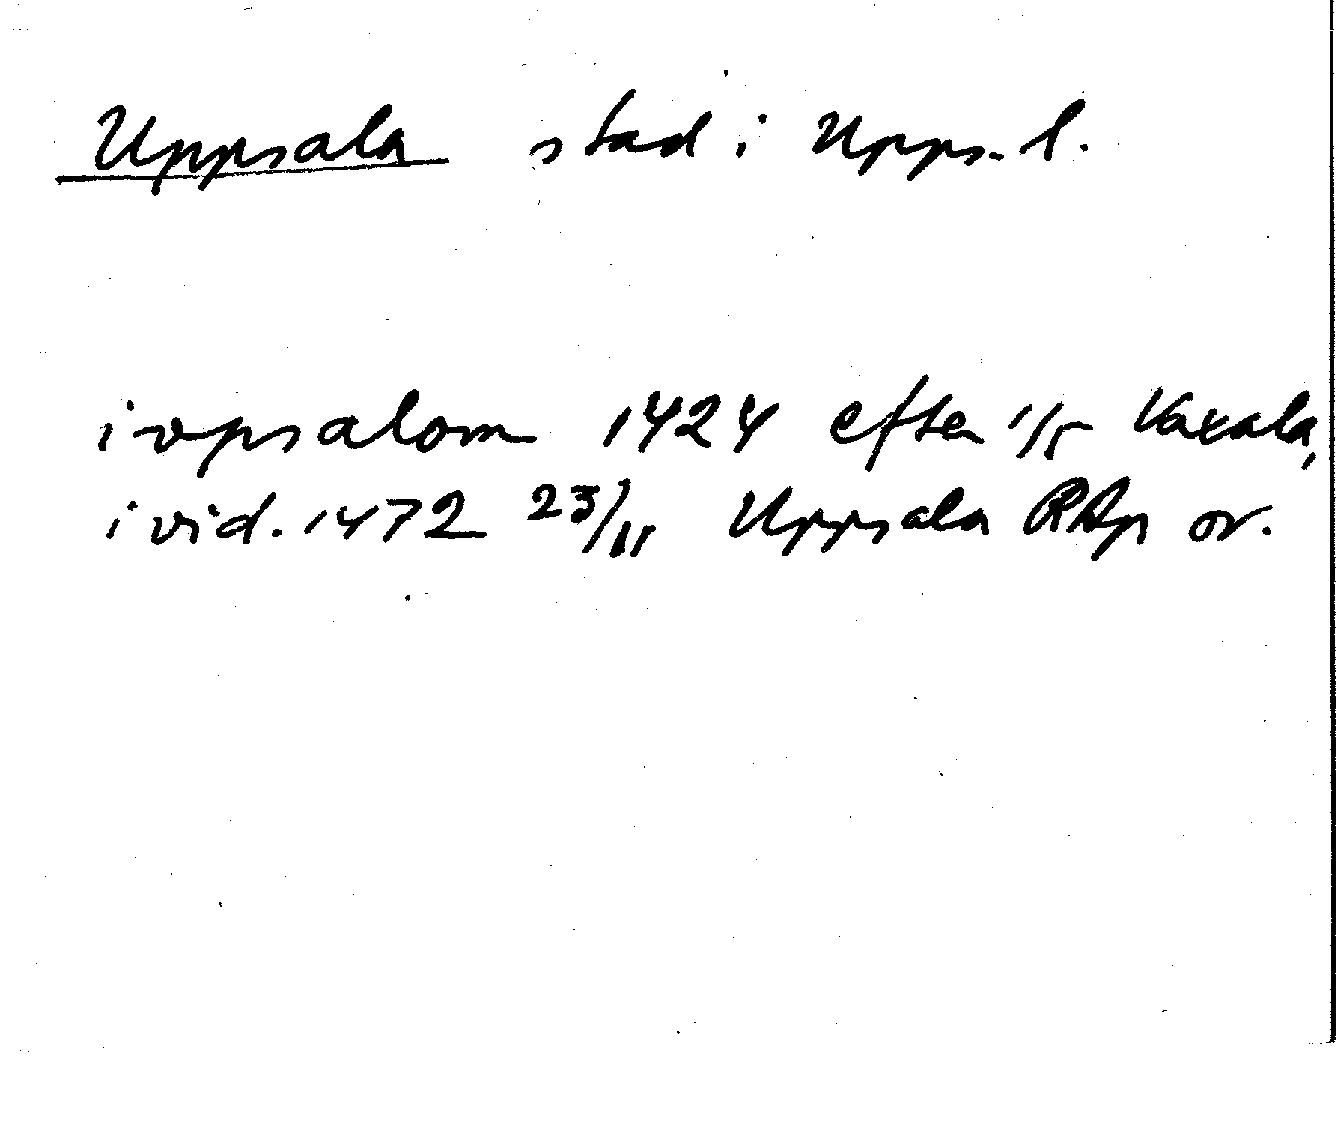 Uppsala stad i Upps. l.
i vpsalom 1424 efter 1/5 Vaxala,
i vid. 1472 23/11 Uppsala RAp or.